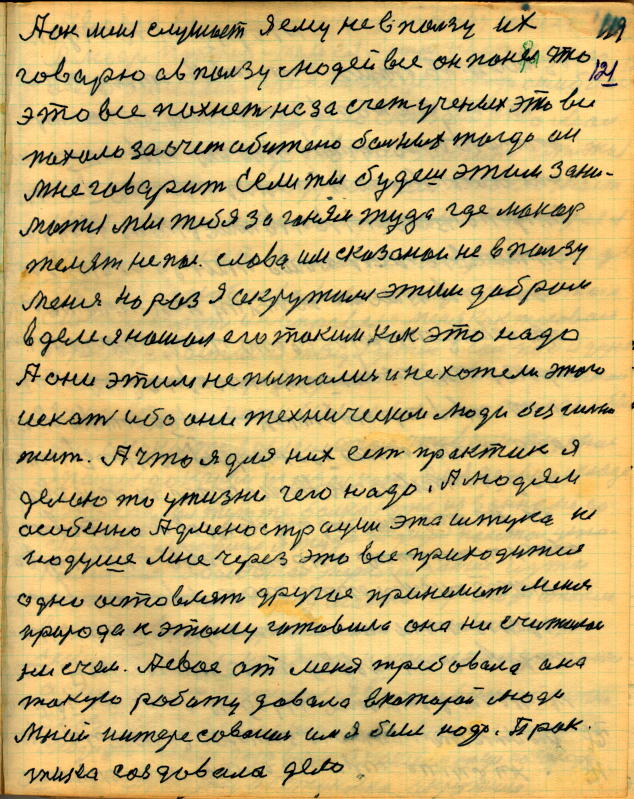 119
А он меня слушает я ему не в ползу их
говарю а в ползу людей все он понял что
121
это все похнет не за счет ученых это все
пахало за счет обижено больных тогда он
мне говарит Если ты будеш этим зани-
матся мы тебя загоним туда где макар
телят не пас. слова им сказаной не в ползу
меня. Но раз я окружил этим добром
в деле я нашол его таким как это надо
А они этим не пыталис и не хотели этого
искат ибо они технической люди без
жит. А что я для них ест практик я
делаю то у жизни чего надо. А людям
особенно Администрации эта штука не
по душе мне через это все приходится
одно оставлят другое принемат меня
природа к этому готовила она ни считалас
ни счем. Живое от меня требовала она
такую работу давала в каторой люди
мной интересовалис им я был надо. Прак.
тика создовала дело